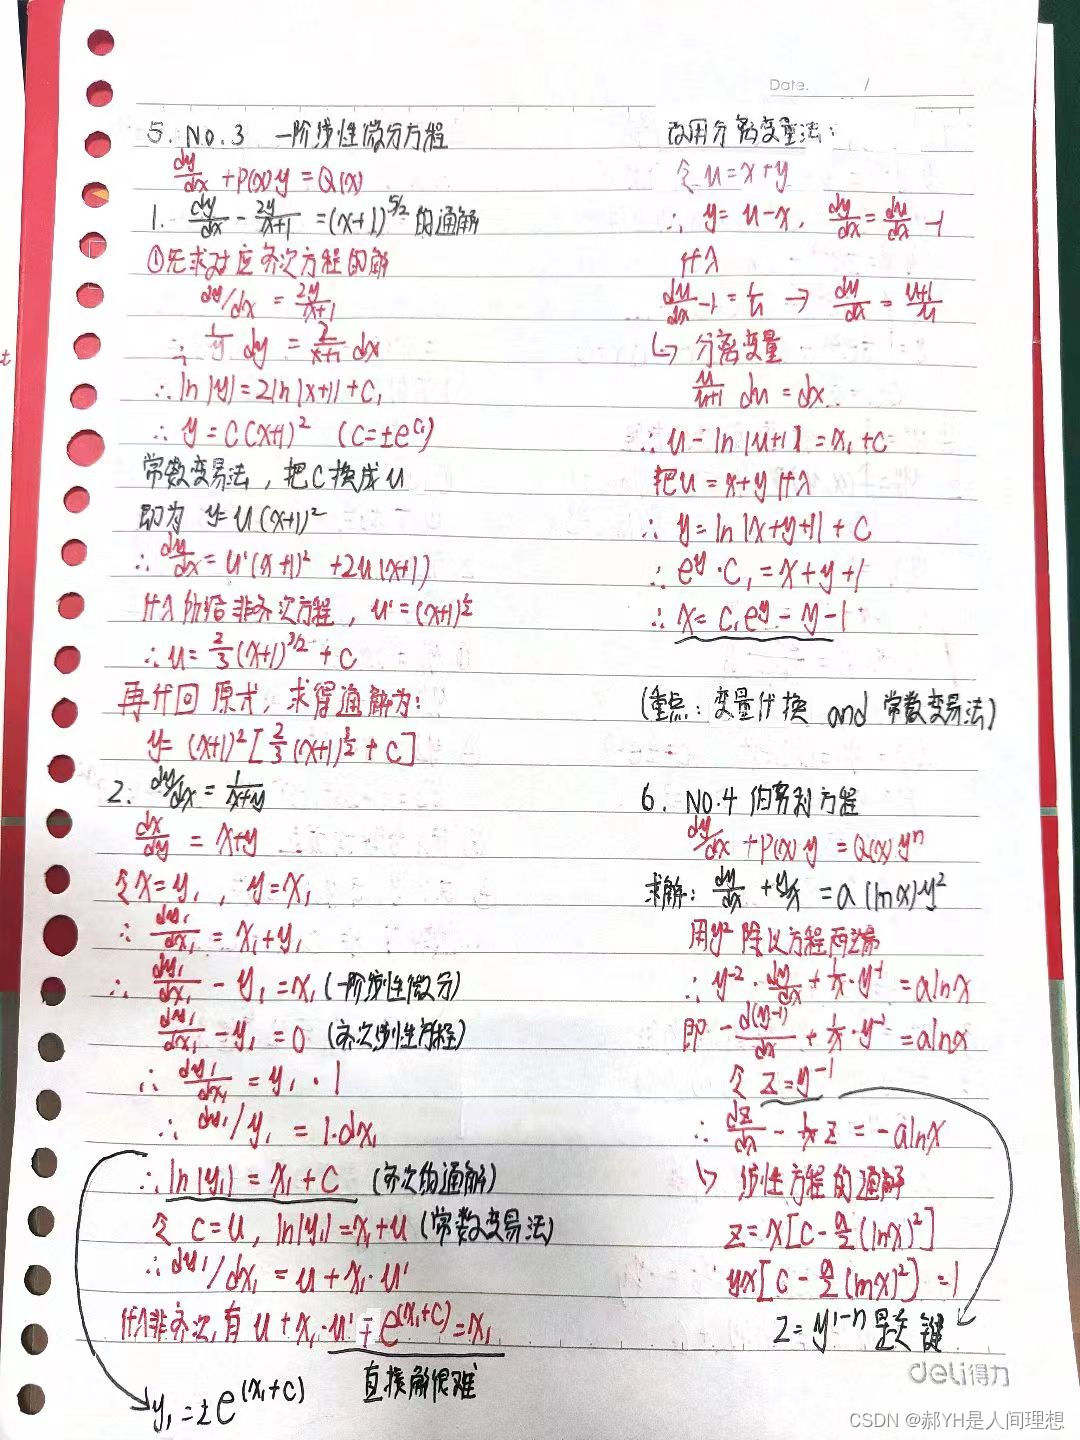 Date. /
5. No.3 一阶线性微分方程
dy/dx + P(x)y = Q(x)
1. dy/dx - 2y/(x+1) = (x+1)^(5/2) 的通解
①先求对应齐次方程的解
dy/dx = 2y/(x+1)
∴ 1/y dy = 2/(x+1) dx
∴ ln|y| = 2ln|x+1| + C₁
∴ y = C(x+1)² (C=±e^(C₁))
常数变易法，把C换成u
即为 y=u(x+1)²
∴ dy/dx = u'(x+1)² + 2u(x+1)
代入所给非齐次方程，u'=(x+1)^(1/2)
∴ u = 2/3 (x+1)^(3/2) + C
再代回原式，求得通解为:
y = (x+1)² [2/3 (x+1)^(3/2) + C]
2. dy/dx = 1/(x+y)
dx/dy = x+y
令x=y₁, y=x₁
∴ dy₁/dx₁ = x₁+y₁
∴ dy₁/dx₁ - y₁ = x₁ (一阶线性微分)
dy₁/dx₁ - y₁ = 0 (齐次线性方程)
∴ dy₁/dx₁ = y₁ · 1
∴ dy₁/y₁ = 1·dx₁
∴ ln|y₁| = x₁ + C (齐次的通解)
令 C=u, ln|y₁|=x₁+u (常数变易法)
∴ dy₁/dx₁ = u + x₁·u'
代入非齐次,有 u + x₁·u' ∓ e^(x₁+C) = x₁
直接解很难
y₁ = ±e^(x₁+C)
改用分离变量法:
令 u=x+y
∴ y=u-x, dy/dx = du/dx - 1
代入
du/dx - 1 = 1/u → du/dx = (u+1)/u
↳ 分离变量
u/(u+1) du = dx
∴ u - ln|u+1| = x₁+C
把u=x+y代入
∴ y = ln|x+y+1| + C
∴ e^y · C₁ = x+y+1
∴ x = C₁e^y - y - 1
(重点: 变量代换 and 常数变易法)
6. No.4 伯努利方程
dy/dx + P(x)y = Q(x)y^n
求解: dy/dx + y/x = a(lnx)y²
用y²除以方程两端
∴ y^-2 · dy/dx + 1/x · y^-1 = alnx
即 - d(y^-1)/dx + 1/x · y^-1 = alnx
令 z=y^-1
∴ dz/dx - 1/x z = -alnx
↳ 线性方程的通解
z = x[C - a/2 (lnx)²]
yx[C - a/2 (lnx)²] = 1
z = y^(1-n) 是关键
deli得力
CSDN @郝YH是人间理想